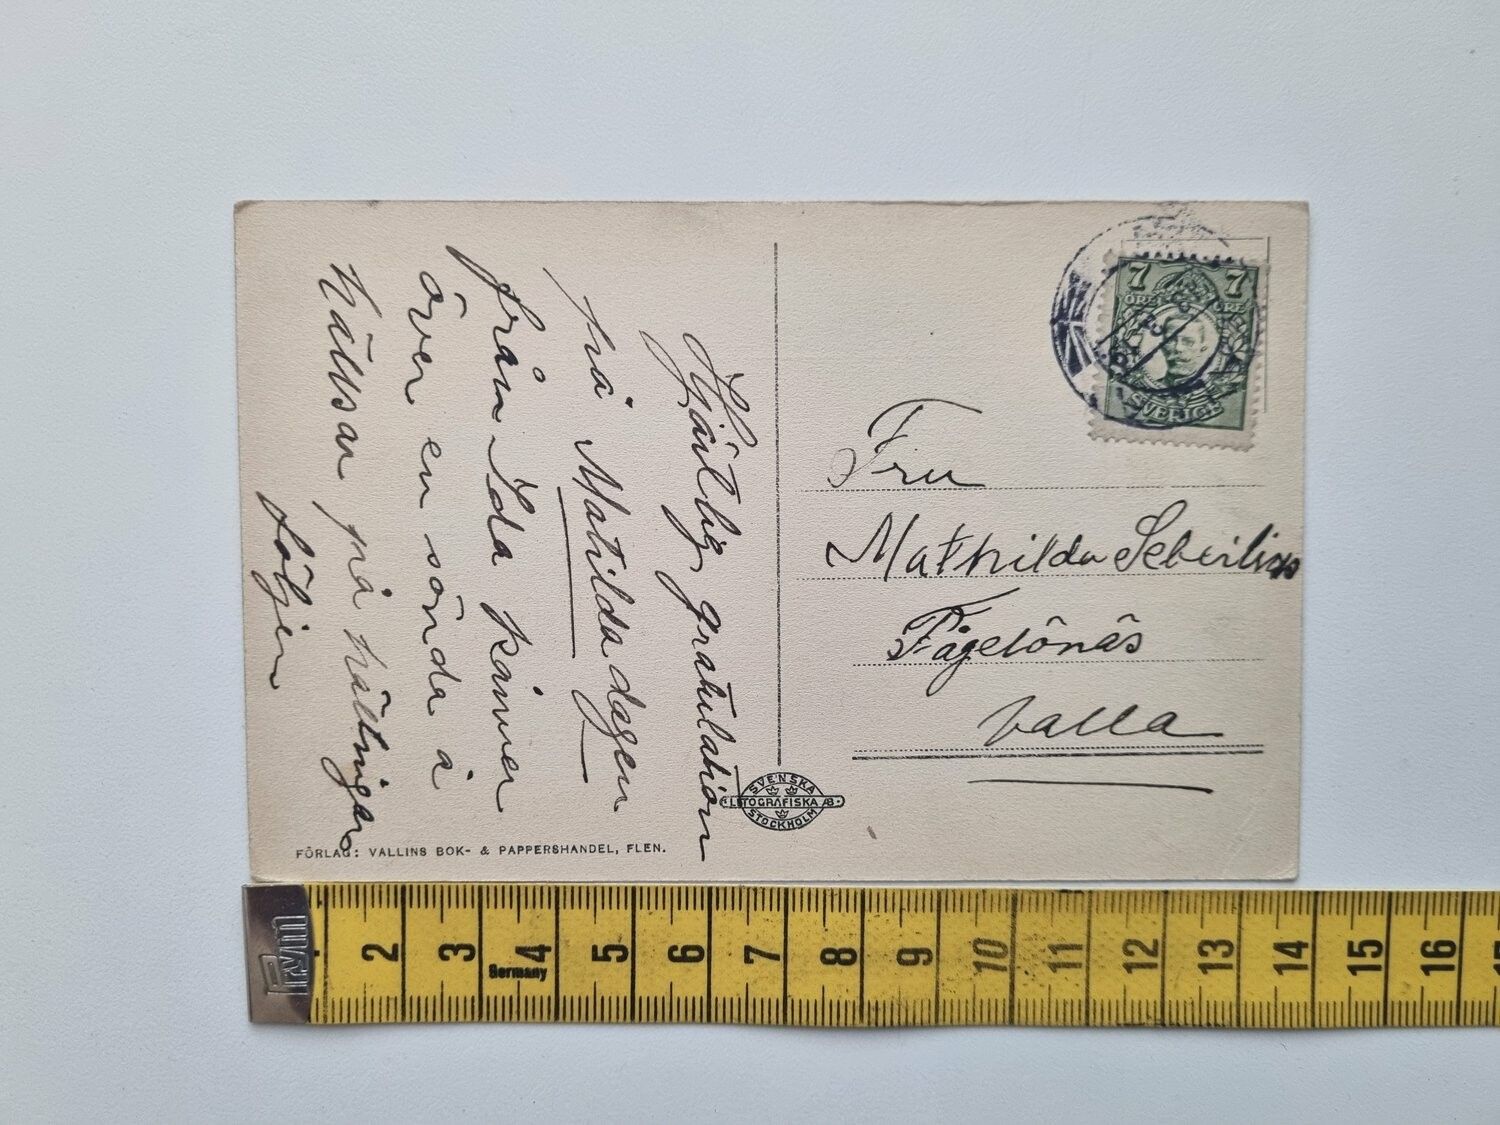 Hjärtlig gratulation
på Matilda dagen
från Ida kämner
över en sönda á
hälsan på hällningar
FÖRLAG: VALLINS BOK- & PAPPERSHANDEL, FLEN.
SVENSKA
LITOGRAFISKA AB
STOCKHOLM
7 7
ÖRE ÖRE
SVERIGE
Fru
Mathilda
Fågelönäs
Valla
Prym
2 3 4 5 6 7 8 9 10 11 12 13 14 15 16
Germany